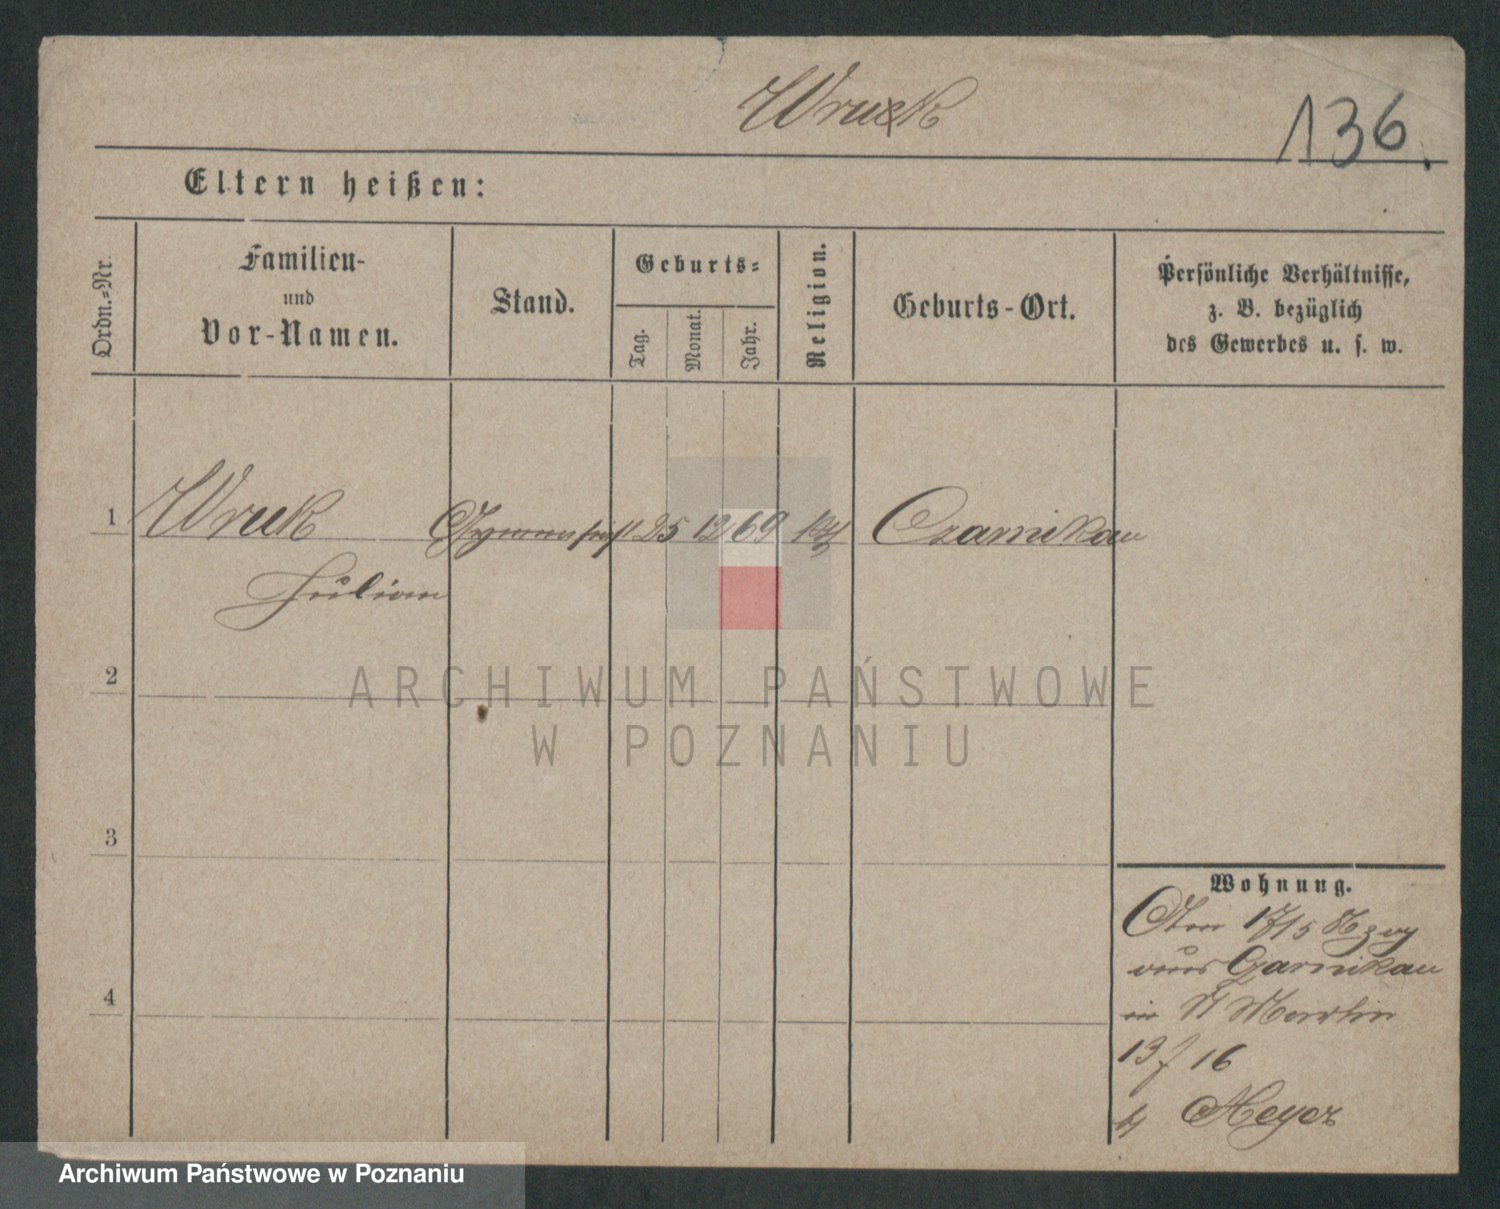 Wruck
136.
Eltern heißen:
Ordn.=Nr.
Familien-
und
Vor-Namen.
Stand.
Geburts=
Tag.
Monat.
Jahr.
Religion.
Geburts-Ort.
Persönliche Verhältnisse,
z. B. bezüglich
des Gewerbes u. s. w.
1 Wruck Gymnasiast 25 12 69 kth Czarnikau
Julian
2
3
4
Wohnung.
17/5
aus Czarnikau
in St Martin
13 f 16
b/ Meyer
ARCHIWUM PAŃSTWOWE
W POZNANIU
Archiwum Państwowe w Poznaniu